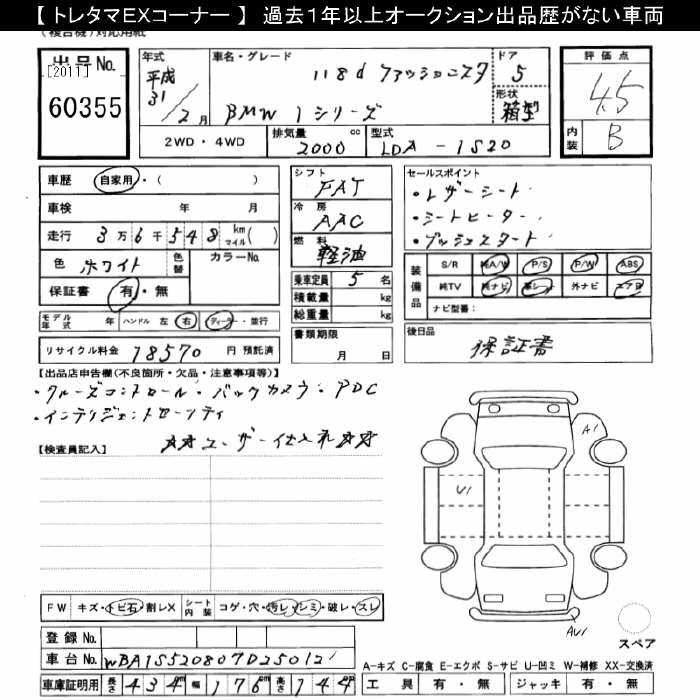 【 トレタマEXコーナー 】 過去1年以上オークション出品歴がない車両
(複合機)対応用紙
出品No.
[2011]
60355
年式
平成
31/2月
車名・グレード
118d ファッショニスタ
BMW 1シリーズ
ドア
5
形状
箱型
評価点
4.5
内装
B
2WD・4WD
排気量
2000cc
型式
LDA-1S20
車歴 自家用・( )
車検 年 月
走行 3万6千548 km マイル( )
色 ホワイト 色替 カラーNo.
保証書 有・無
モデル年式 年 ハンドル 左 右 ディーラー・並行
リサイクル料金 18570 円 預託済
シフト
FAT
冷房
AAC
燃料
軽油
乗車定員 5名
積載量 kg
総重量 kg
書類期限
月 日
セールスポイント
・レザーシート
・シートヒーター
・プッシュスタート
装備品
S/R 純A/W P/S P/W ABS
純TV 純ナビ 革シート 外ナビ エアB
ナビ型番:
後日品
保証書
【出品店申告欄(不良箇所・欠品・注意事項等)】
・クルーズコントロール・バックカメラ・PDC
・インテリジェントセーフティ
☆☆ユーザー仕入れ☆☆
【検査員記入】
A1
U1
AU1
スペア
FW キズ・トビ石・割レX シート内装 コゲ・穴・汚レ・シミ・破レ・スレ
登録No.
車台No. WBA1S520807D25012
車庫証明用 長さ 434 幅 176 高さ 144
A-キズ C-腐食 E-エクボ S-サビ U-凹ミ W-補修 XX-交換済
工具 有・無 ジャッキ 有・無